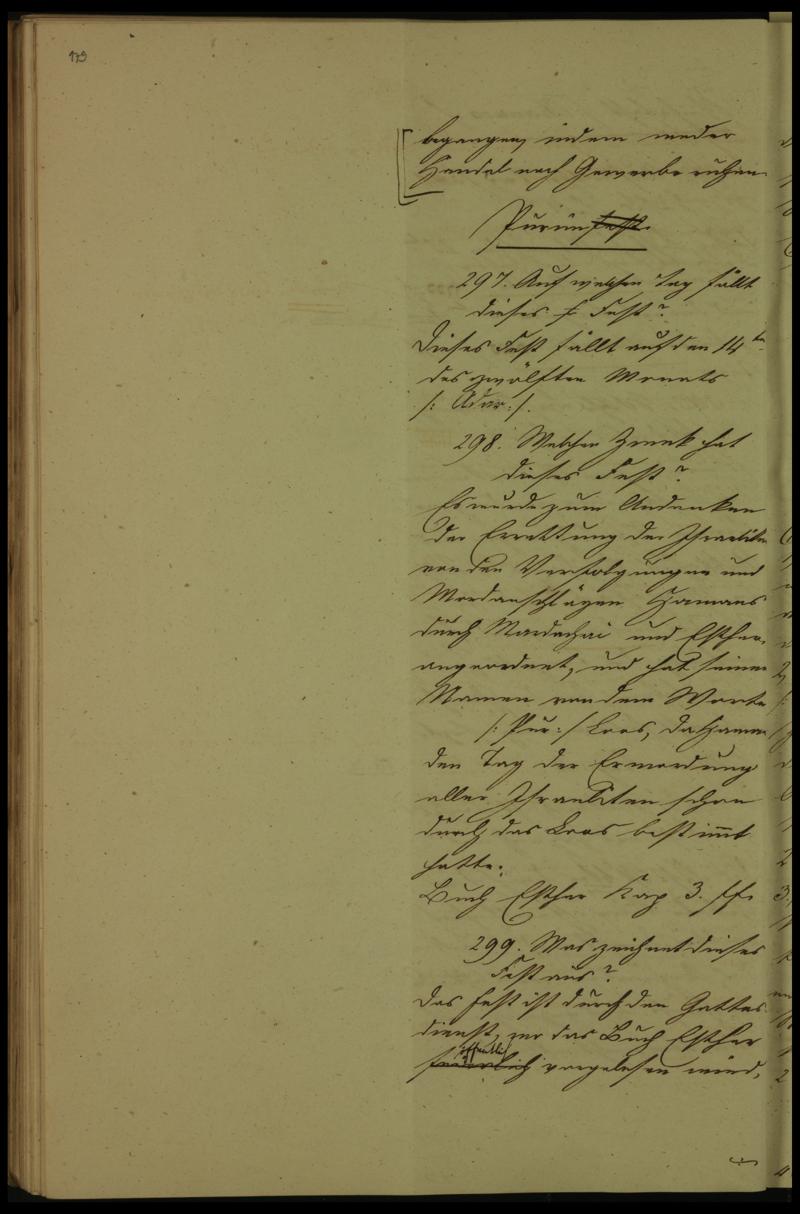 179
begangen, indem weder
Handel noch Gewerbe ruhen.
Purimfest.
297. Auf welchen Tag fällt
dieses f Fest?
Dieses Fest fällt auf den 14ten
des zwölften Monats
/: Adar :/.
298. Welchen Zweck hat
dieses Fest?
Es wurde zum Andenken
der Errettung der Israeliten
von den Verfolgungen und
Mordanschlägen Hamans
durch Mardachai und Esther,
angeordnet, und hat seinen
Namen von dem Worte
/: Pur :/ Loos, da Haman
den Tag der Ermordung
aller Israeliten schon
durch das Loos bestimmt
hatte.
Buch Esther Kap 3. ff.
299. Was zeichnet dieses
Fest aus?
Das Fest ist durch den Gottes
dienst, wo das Buch Esther
öffentlich
feierlich vorgelesen wird,